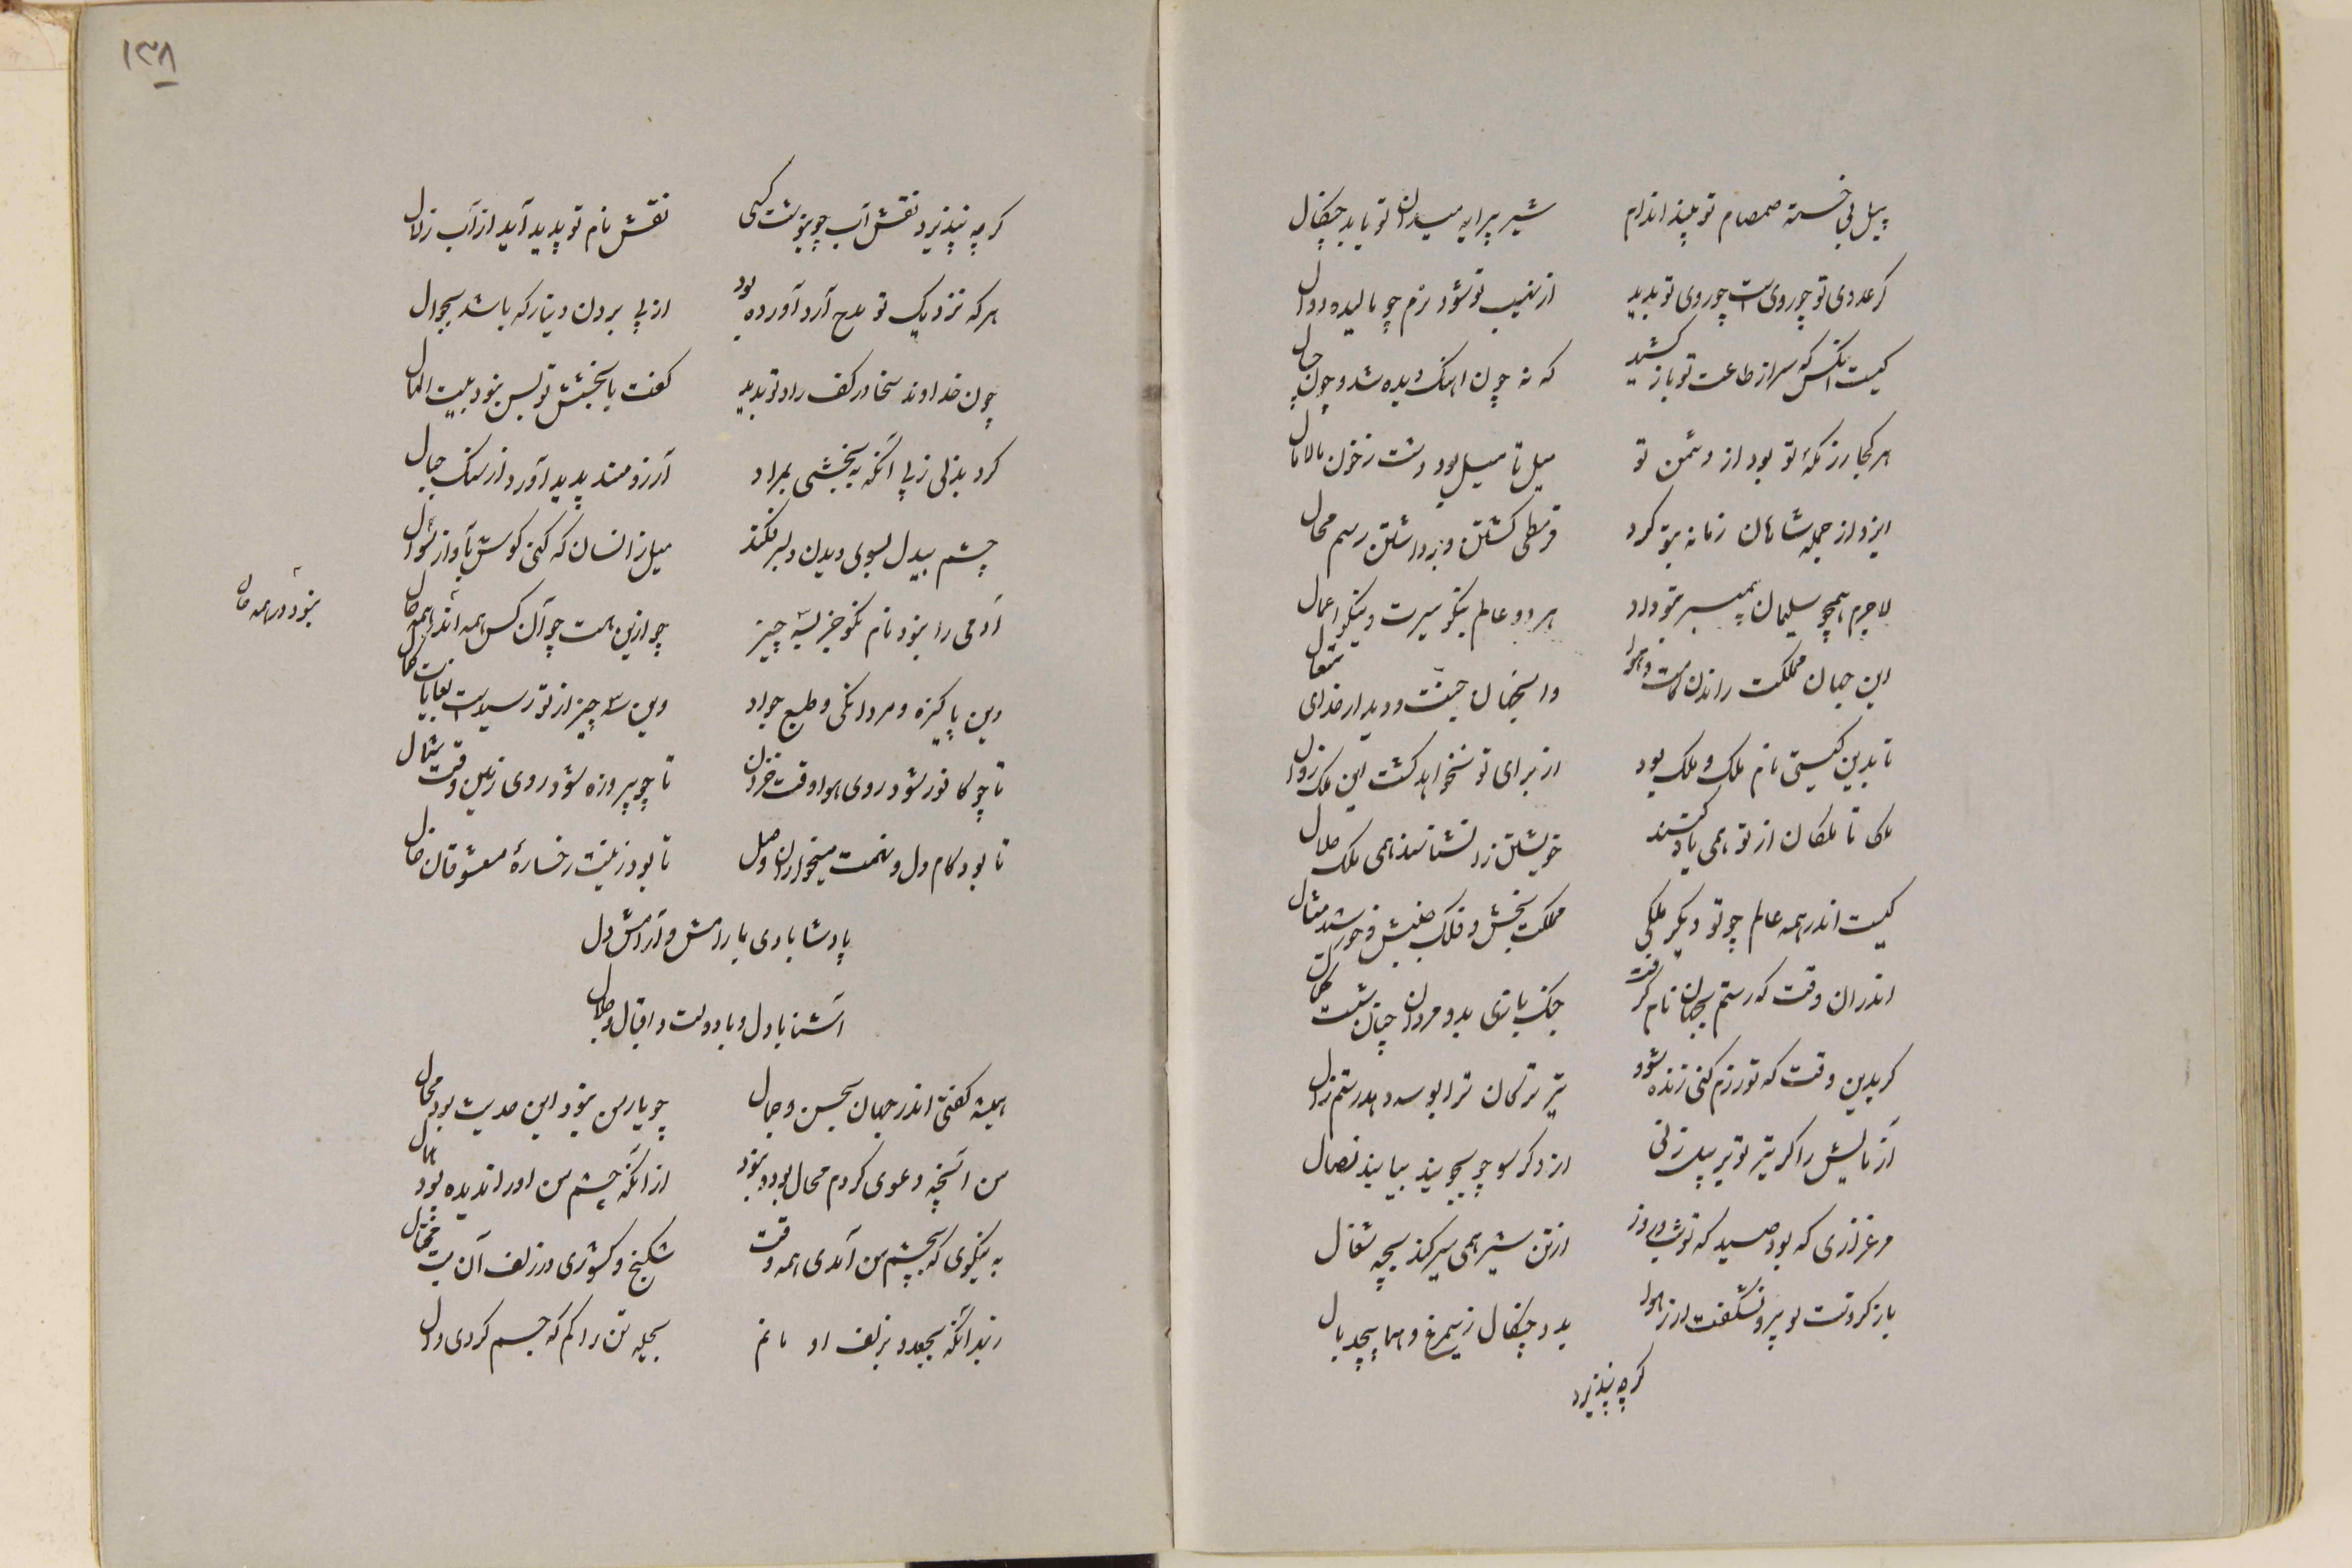 پیل پی خسته صمصام تو بیند اندام شیر پیرایه میدان تو یابد چنگال
گر عدوی تو چو روی است چو روی تو بدید از نهیب تو شود نرم چو مالیده دوال
کیست آنکس که سر از طاعت تو باز کشید که نه چون ایلک دیده شد و چون چپال
هر کجا رزمگه تو بود از دشمن تو میل تا میل بود دشت ز خون مالامال
ایزد از جمله شاهان زمانه بتو کرد قرمطی کشتن و برداشتن رسم محال
لاجرم همچو سلیمان پیمبر بتو داد هر دو عالم بنیکو سیرت و نیکو اعمال
این جهان مملکت راندن کامست و هوا وانجهان جنت و دیدار خدای متعال
تا بدین گیتی نام ملک و ملک بود از برای تو نخواهد گشت این ملک زوال
ملکا تا ملکان از تو همی یاد کنند خویشتن زد نشناسند همی ملک حلال
کیست اندر همه عالم چو تو دیگر ملکی مملکت بخش و فلک جنبش و خورشید مثال
اندران وقت که رستم بجهان نام گرفت جنگ بازی بد و مردان جهان سست سگال
گر بدین وقت که تو رزم کنی زنده شود تیر ترکان ترا بوسه دهد رستم زال
آزمایش را گر تیر تو بر پیل زنی از دگر سو چو بجویند بیابند نصال
مرغزاری که بود صیدگه تو شب و روز از تن شیر همی سیر کند بچه شغال
باز کز دست تو پرد نشگفت ار ز هوا بدرد چنگال ز سیمرغ و هما پیچد بال
گرچه نپذیرد
۱۳۸
گرچه نپذیرد نقش آب چو بنوشت کسی نقش نام تو پدید آید از آب زلال
هر که نزدیک تو مدح آرد آورده بود از پی بردن دینار که باشد بجوال
چون خداوند سخا در کف راد تو بدید گفت با بخشش تو بس نبود بیت المال
کرد بذلی ز پی آنکه ببخشی بمراد آرزومند پدید آورد از سنگ جبال
چشم بیدل بسوی دیدن دلبر نکند میل زانسان که کنی گوش بآواز سؤال
آدمی را بنود نام نکو جز بسه چیز چو ازین هست چو آن کس همه اندر همه حال
نبود در همه حال
دین پاکیزه و مردانگی و طبع جواد وین سه چیز از تو رسیدست بغایات کمال
تا چو کافور شود روی هوا وقت خزان تا چو پیروزه شود روی زمین وقت شمال
تا بود کام دل و نهمت میخواران وصل تا بود زینت رخساره معشوقان خال
پادشا بادی با رامش و آرامش دل
آشنا با دل و با دولت و اقبال و جلال
همیشه گفتمی اندر جهان بحسن و جمال چو یار من نبود این حدیث بود محال
من آنچه دعوی کردم محال بود و نبود از آنکه چشم من او را ندیده بود همال
به نیکوی که بچشم من آمدی همه وقت شکنج و کشوری در زلف آن بت محتال
ز بد آنکه بجعد و بزلف او مانم بحیله تن را گم که جسم کردی دال